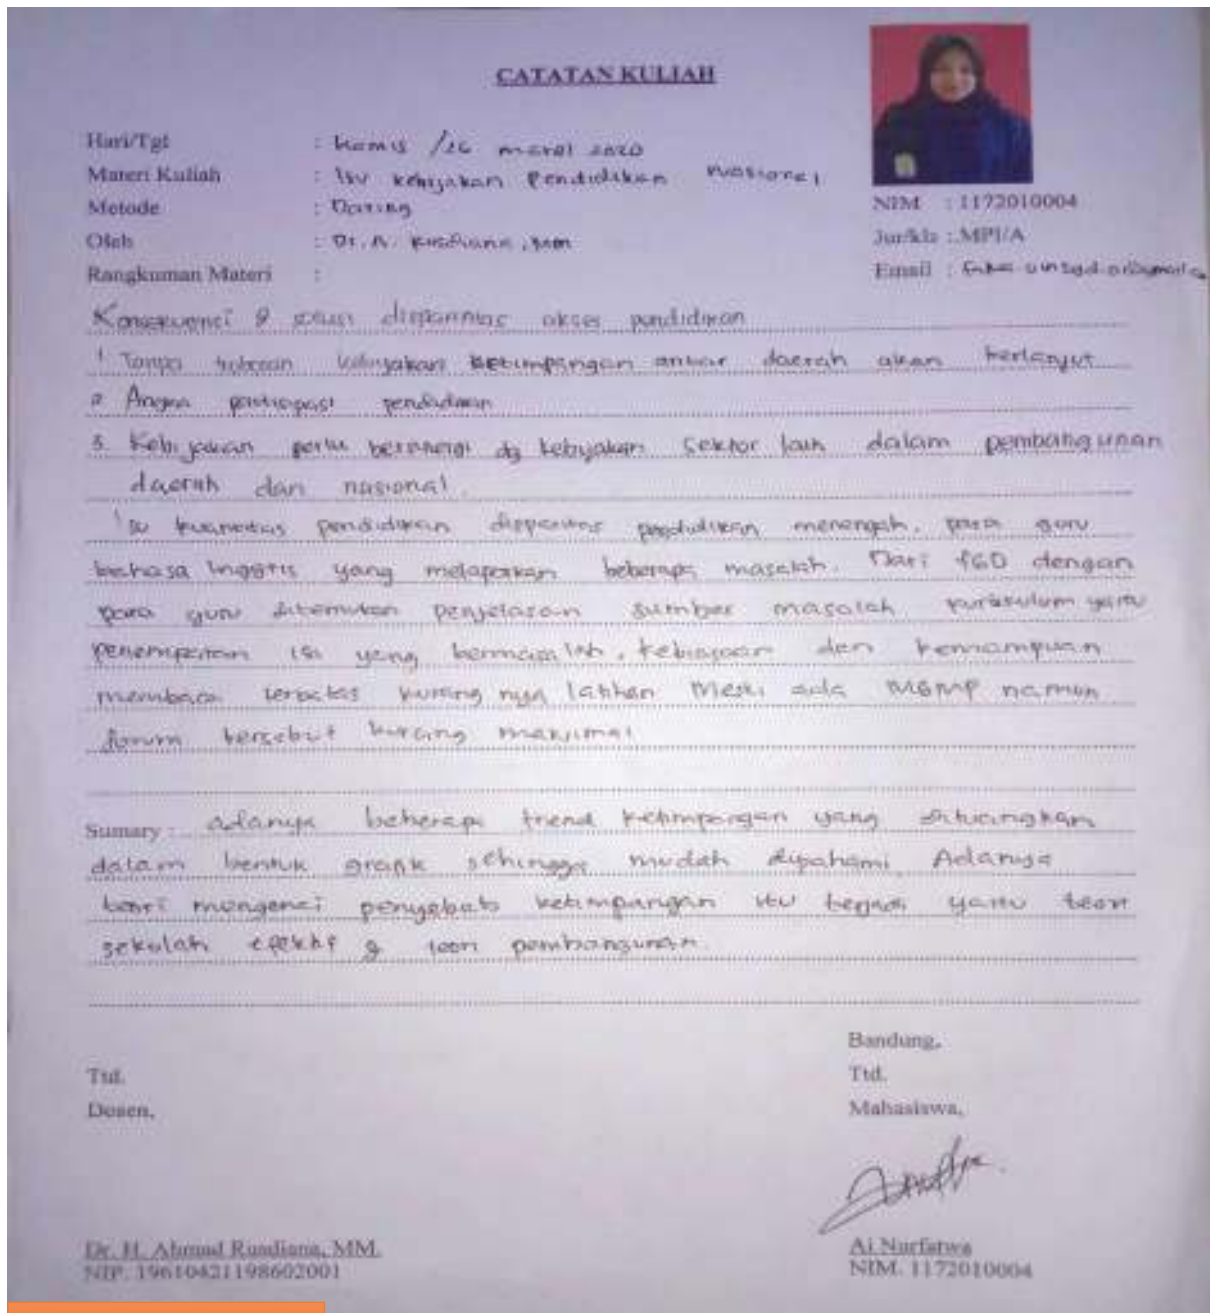 CATATAN KULIAH
Hari/Tgl : Kamis /26 maret 2020
Materi Kuliah : Isu kebijakan Pendidikan Nasional
Metode : Daring
Oleh : Dr. A. Rusdiana, MM
Rangkuman Materi :
NIM : 1172010004
Jur/kls : MPI/A
Email :
Konsekuensi & disparitas akses pendidikan
1 Tanpa kebijakan ketimpangan antar daerah akan berlanjut
2 Angka partisipasi pendidikan
3. Kebijakan perlu bersinergi dg kebijakan sektor lain dalam pembangunan
daerah dan nasional.
Isu kuantitas pendidikan disparitas pendidikan menengah. para guru
bahasa Inggris yang melaporkan beberapa masalah. Dari FGD dengan
para guru ditemukan penjelasan sumber masalah kurikulum yaitu
penempatan isi yang bermasalah, kebiasaan dan kemampuan
membaca terbatas kurang nya latihan Meski ada MGMP namun
forum tersebut kurang maksimal
Sumary : adanya beberapa trend ketimpangan yang dituangkan
dalam bentuk grafik sehingga mudah dipahami. Adanya
teori mengenai penyebab ketimpangan itu terjadi yaitu teori
sekolah efektif & teori pembangunan.
Bandung,
Ttd. Ttd.
Dosen, Mahasiswa,
Dr. H. Ahmad Rusdiana, MM. Ai Nurfatwa
NIP. 19610421198602001 NIM. 1172010004